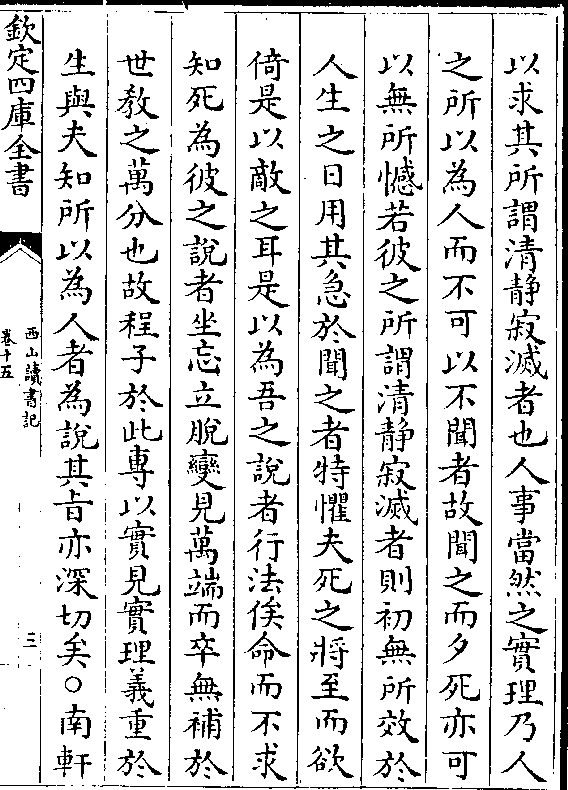 以求其所謂清静寂滅者也人事當然之實理乃人
之所以為人而不可以不聞者故聞之而夕死亦可
以無所憾若彼之所謂清静寂滅者則初無所效於
人生之日用其急於聞之者特懼夫死之將至而欲
倚是以敵之耳是以為吾之說者行法俟命而不求
知死為彼之說者坐忘立脫變見萬端而卒無補於
世教之萬分也故程子於此專以實見實理義重於
生與夫知所以為人者為說其㫖亦深切矣○南軒
欽定四庫全書
西山讀書記
卷十五
三